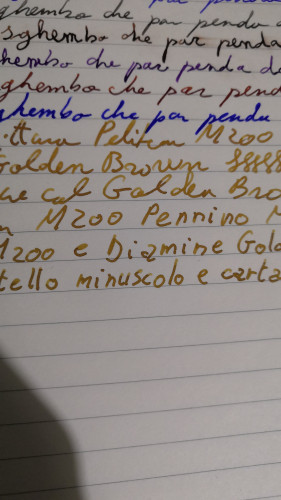 ghembo che par pendu
sghembo che par penda
hembo che par penda da
ghembo che par pend
ghembo che par pendu
ttura Pelikan M200
Golden Brown
col Golden Bro
M200 Pennino M
M200 e Diamine Gold
tello minuscolo e carta